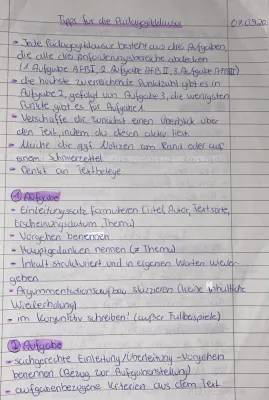 Tipps für die Pädagogikklausur 07.03.20
- Jede Pädagogikklausur besteht aus drei Aufgaben,
die alle drei Anforderungsbereiche abdecken
(1. Aufgabe AFB I, 2. Aufgabe AFB II, 3. Aufgabe AFB III)
- die höchste zu erreichende Punktzahl gibt es in
Aufgabe 2, gefolgt von Aufgabe 3, die wenigsten
Punkte gibt es für Aufgabe 1
- Verschaffe dir zunächst einen Überblick über
den Text, indem du diesen aktiv liest
- Mache dir ggf. Notizen am Rand oder auf
einem Schmierzettel
- Denkt an Textbelege
1 Aufgabe
- Einleitungssatz formulieren (Titel, Autor, Textsorte,
Erscheinungsdatum, Thema)
- Vorgehen benennen
- Hauptgedanken nennen (≠ Thema)
- Inhalt strukturiert und in eigenen Worten wieder-
geben
- Argumentationsaufbau skizzieren (keine inhaltliche
Wiederholung)
- im Konjunktiv schreiben! (außer Fallbeispiele)
2 Aufgabe
- sachgerechte Einleitung/Überleitung - Vorgehen
benennen (Bezug zur Aufgabenstellung)
- aufgabenbezogene Kriterien aus dem Text